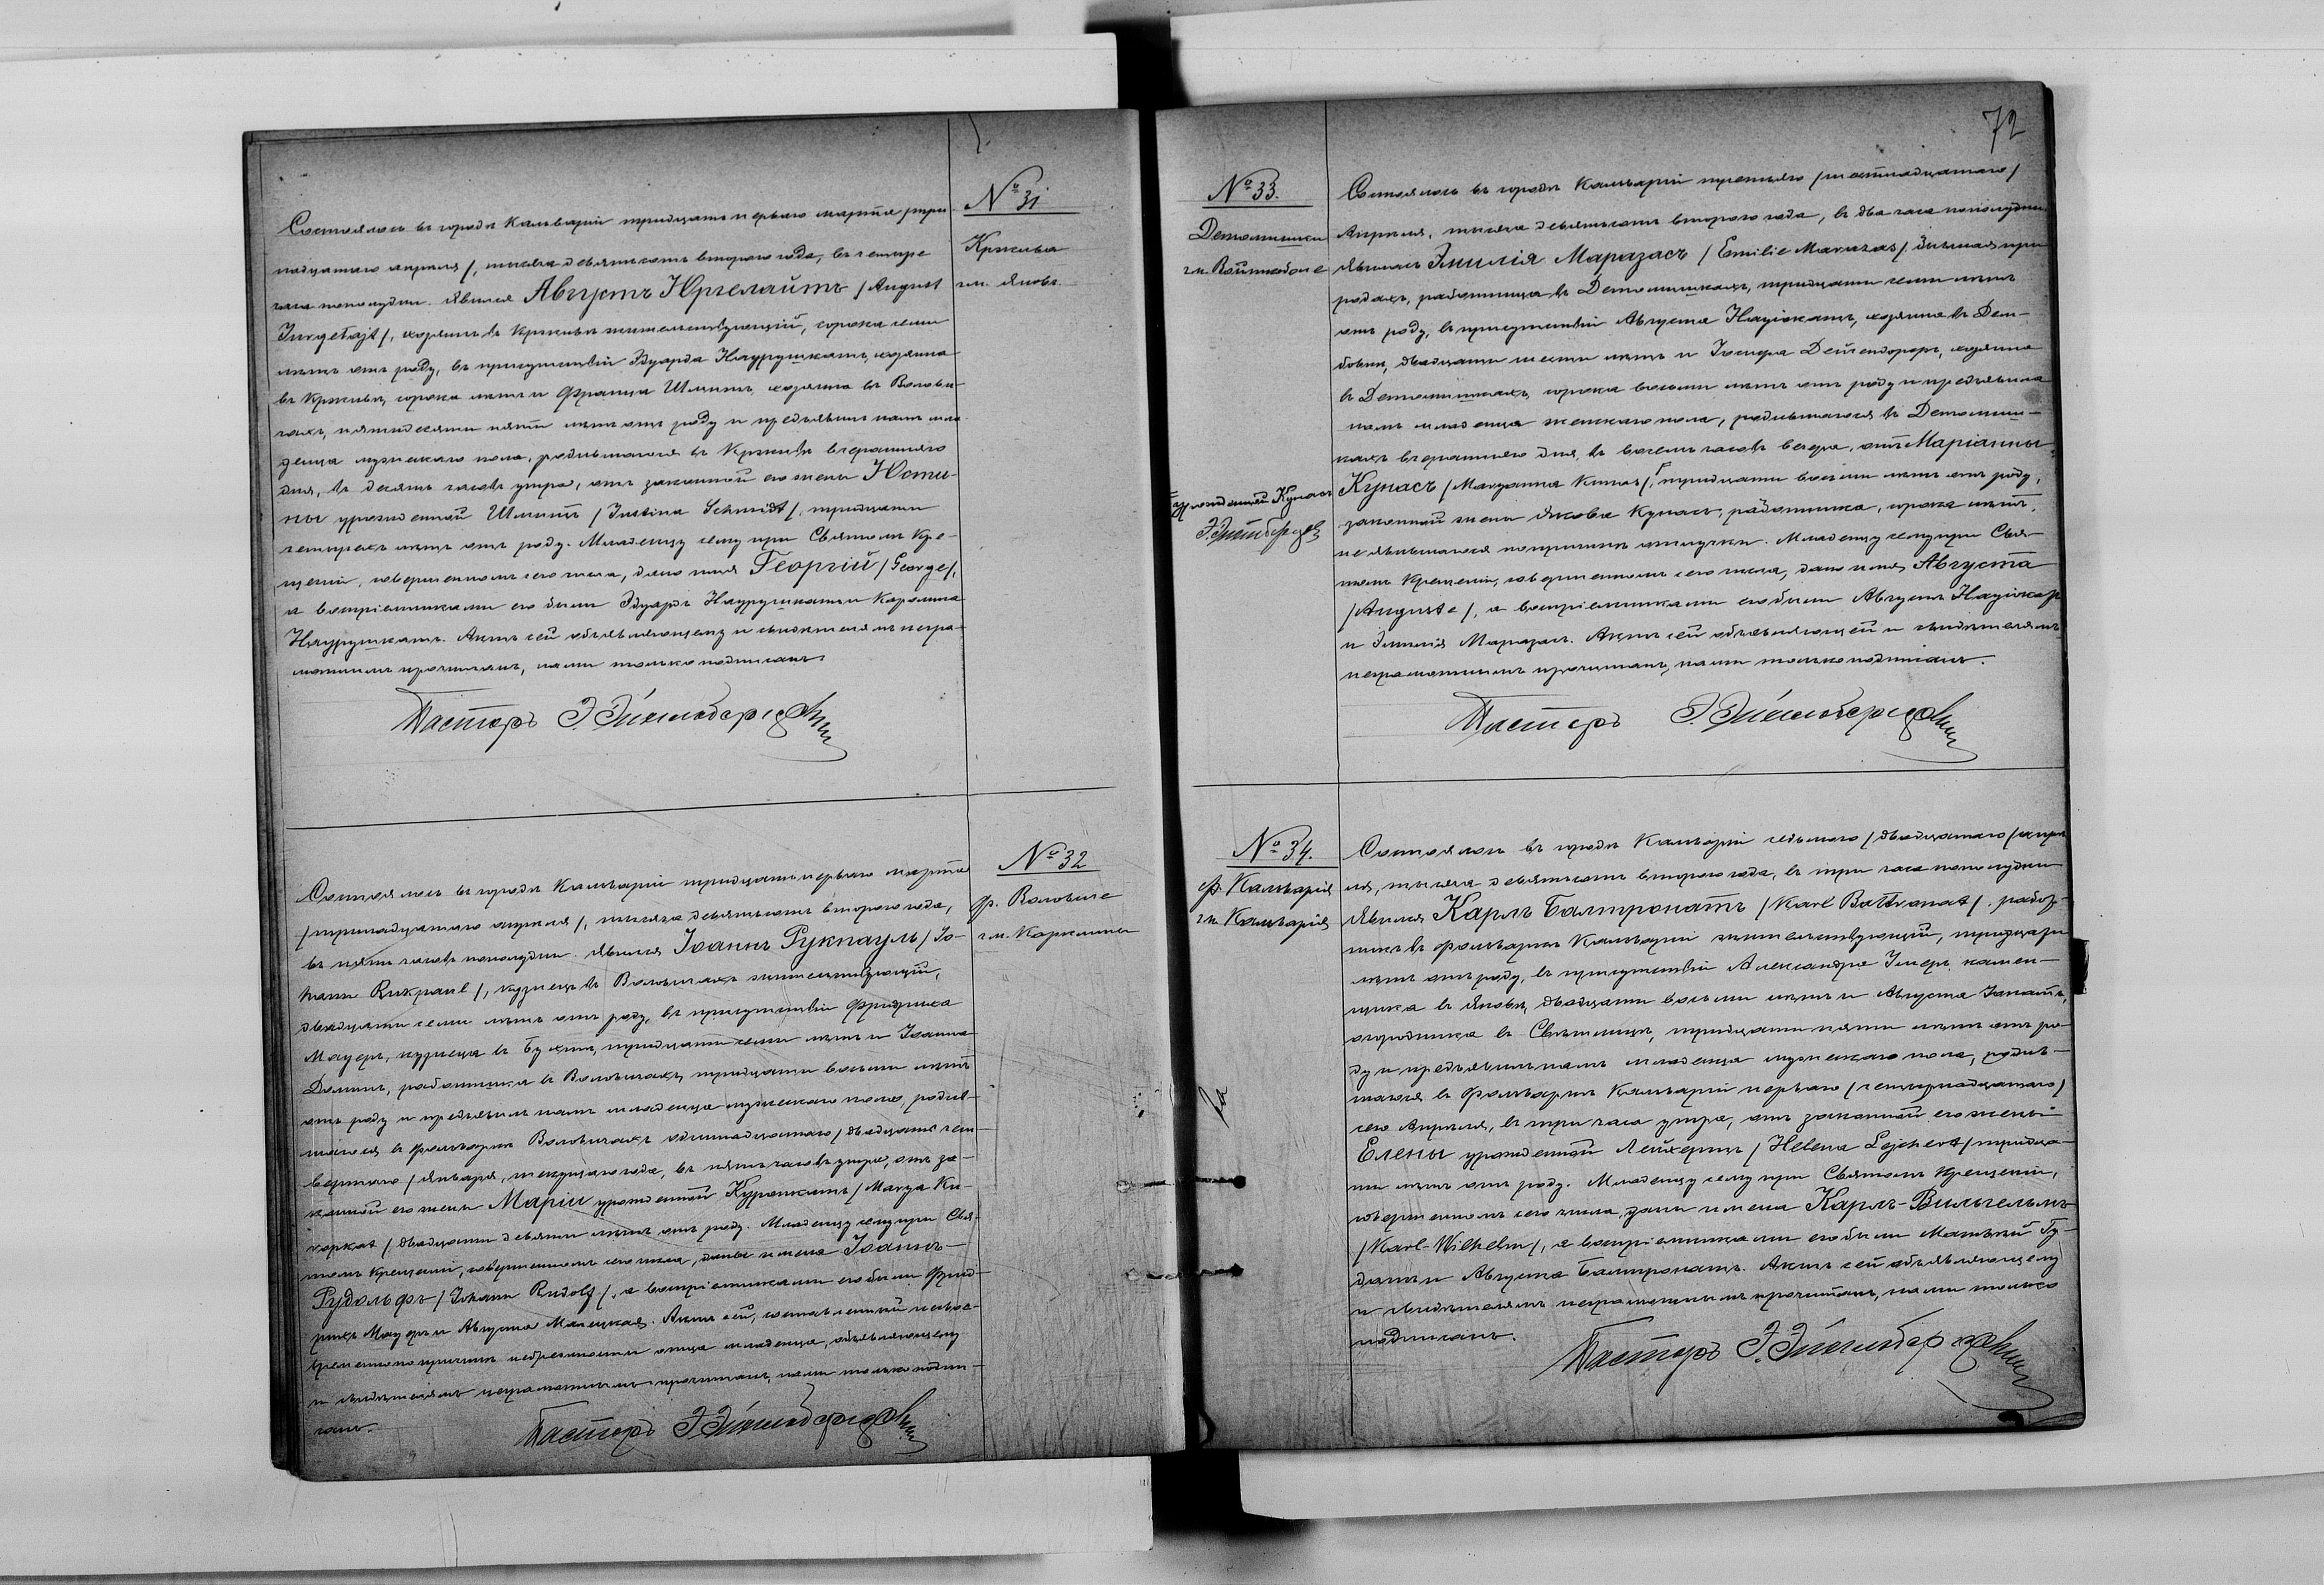 № 31
Кржива
гм. Яново
Состоялось въ городѣ Кальваріи тридцать перваго марта /три
надцатаго апрѣля/, тысяча девятьсотъ второго года, въ четыре
часа пополудни. Явился Августъ Юргелайтъ /August
Jurgelajt/, хозяинъ въ Крживѣ жительствующій, сорока семи
лѣтъ отъ роду, въ присутствіи Эдуарда Наурушкатъ, хозяина
въ Крживѣ, сорока лѣтъ и Франца Шмитъ, хозяина въ Волови-
чахъ, пятидесяти пяти лѣтъ отъ роду и предъявилъ намъ мла
денца мужескаго пола, родившагося въ Крживѣ вчерашняго
дня, въ десять часовъ утра, отъ законной его жены Юсти-
ны урожденной Шмитъ /Justina Schmidt/, тридцати
четырехъ лѣтъ отъ роду. Младенцу сему при Святомъ Кре-
щеніи, совершенномъ сего числа, дано имя Георгій /George/,
а воспріемниками его были Эдуардъ Наурушкатъ и Каролина
Наурушкатъ. Актъ сей объявляющему и свидѣтелямъ негра-
мотнымъ прочитанъ, нами только подписанъ.
Пасторъ Э.
№ 32
ф. Воловиче
гм.
Состоялось въ городѣ Кальваріи тридцать перваго марта
/тринадцатаго апрѣля/, тысяча девятьсотъ второго года,
въ пять часовъ пополудни. Явился Іоаннъ Рукпауль /Jo-
hann Rukpaul/, кузнецъ въ Воловичахъ жительствующій,
двадцати семи лѣтъ отъ роду, въ присутствіи Фридриха
Мауеръ, кузнеца въ Бухтѣ, тридцати семи лѣтъ и Іоанна
работника въ Воловичахъ, тридцати восьми лѣтъ
отъ роду и предъявилъ намъ младенца мужескаго пола, родив-
шагося въ фольваркѣ Воловичахъ одиннадцатаго /двадцать чет-
вертаго/ января, текущаго года, въ пять часовъ утра, отъ за-
конной его жены Маріи урожденной /Marya Ku-
/ двадцати девяти лѣтъ отъ роду. Младенцу сему при Свя-
томъ Крещеніи, совершенномъ сего числа, даны имена Іоаннъ-
Рудольфъ /Johann Rudolf/, а воспріемниками его были Фрид-
рихъ Мауеръ и Августа Актъ сей, составленный несвое-
временно по причинѣ небрежности отца младенца, объявляющему
и свидѣтелямъ неграмотнымъ прочитанъ, нами только подпи-
санъ.
Пасторъ Э.
72
№ 33.
Детомишки
гм. Войткоболе
Состоялось въ городѣ Кальваріи третьяго /шестнадцатаго/
Апрѣля, тысяча девятьсотъ второго года, въ два часа пополудни
Явилась Эмилія Маразасъ /Emilie Marazas/, бывшая при
родахъ, работница въ Детомишкахъ, тридцати семи лѣтъ
отъ роду, въ присутствіи Августа хозяина въ Дем-
бовкѣ, двадцати шести лѣтъ и Іосифа хозяина
въ Детомишкахъ, сорока восьми лѣтъ отъ роду и предъявила
намъ младенца женскаго пола, родившагося въ Детомиш-
кахъ вчерашняго дня, въ восемь часовъ вечера, отъ Маріанны
Кунасъ /Maryanna Kunas/, тридцати восьми лѣтъ отъ роду,
урожденной Кунасъ
законной жены Якова Кунасъ, работника, сорока лѣтъ,
не явившагося по причинѣ отлучки. Младенцу сему при Свя-
томъ Крещеніи, совершенномъ сего числа, дано имя Августа
/Auguste/, а воспріемниками его были Августъ
и Эмилія Маразасъ. Актъ сей объявляющей и свидѣтелямъ
неграмотнымъ прочитанъ, нами только подписанъ.
Пасторъ Э.
№ 34.
ф. Кальварія
гм. Кальварія
Состоялось въ городѣ Кальваріи седьмого /двадцатаго/ апрѣ
ля, тысяча девятьсотъ второго года, въ три часа пополудни
Явился Карлъ Балтронатъ /Karl Baltronat/, работ-
никъ въ фольваркѣ Кальваріи жительствующій, тридцати
лѣтъ отъ роду, въ присутствіи Александра камен-
щика въ Яновѣ, двадцати восьми лѣтъ и Августа
огородника въ тридцати пяти лѣтъ отъ ро-
ду и предъявилъ намъ младенца мужескаго пола, родив-
шагося въ фольваркѣ Кальваріи перваго /четырнадцатаго/
сего Апрѣля, въ три часа утра, отъ законной его жены
Елены урожденной Лейхертъ /Helena Lejchert/ тридца-
ти лѣтъ отъ роду. Младенцу сему при Святомъ Крещеніи,
совершенномъ сего числа, даны имена Карлъ-Вильгельмъ
/Karl-Wilhelm/, а воспріемниками его были Матвѣй Гу-
датъ и Августа Балтронатъ. Актъ сей объявляющему
и свидѣтелямъ неграмотнымъ прочитанъ, нами только
подписанъ.
Пасторъ Э.